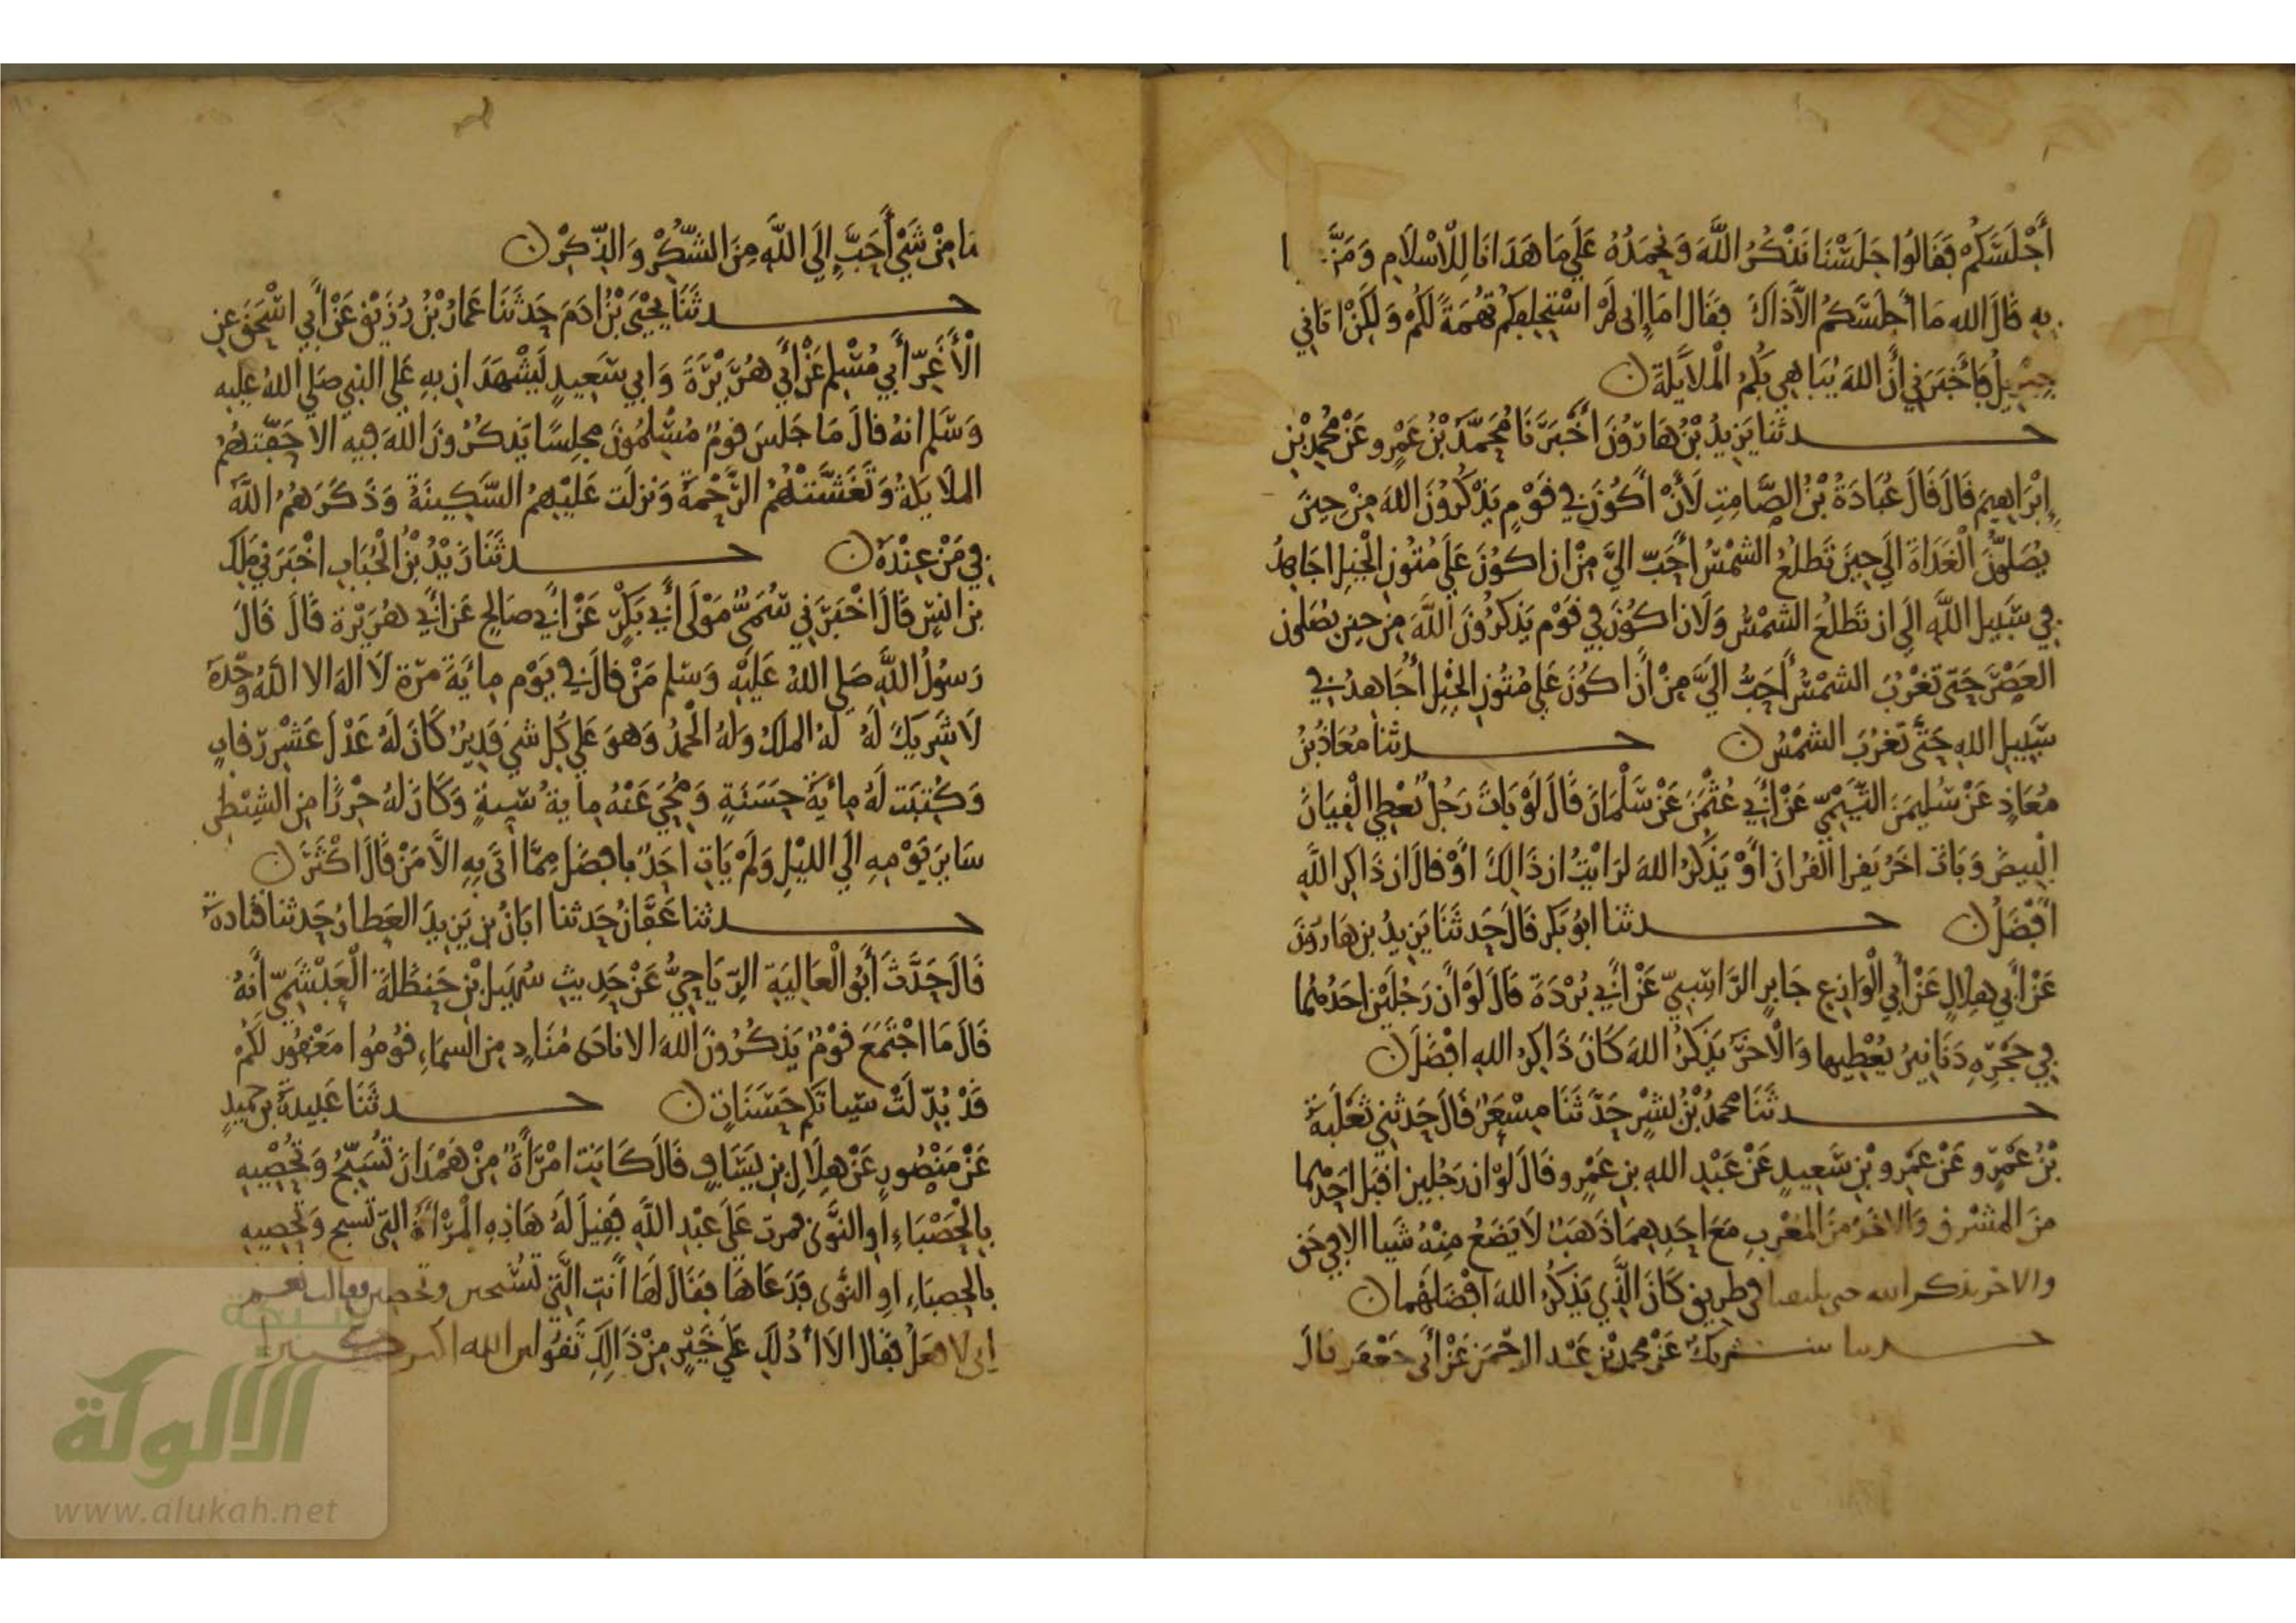 أَجْلَسَكُمْ فَقَالُوا جَلَسْنَا نَذْكُرُ اللَّهَ وَنَحْمَدُهُ عَلَى مَا هَدَانَا لِلْاسْلَامِ وَمَنَّ
بِهِ قَالَ الله مَا أَجْلَسَكُمُ الَّا ذَاكَ فَقَالَ امَا انى لَمْ اسْتَحلِفكُمْ تُهَمَةً لَكُمْ وَلَكِنْ اتَانِي
جِبْرِيلُ فَأَخْبَرَنِي أَنَّ اللهَ يُبَاهِي بِكُمُ الْمَلَايِكَةَ ن
حدثنا يَزِيدُ بْنُ هَارُونَ أَخْبَرَنَا مُحَمَّدُ بْنُ عَمْرٍو عَنْ مُحَمَّدِ بْنِ
إِبْرَاهِيمَ قَالَ قَالَ عُبَادَةُ بْنُ الصَّامِتِ لَأَنْ اكُونَ فِي قَوْمٍ يَذْكُرُونَ اللهَ مِنْ حِينَ
يُصَلُّونَ الْغَدَاةَ الَى حِينَ تَطْلُعُ الشَّمْسُ أَحَبّ الَيَّ مِنْ ان اكُونَ عَلَى مُتُونِ الْخَيْلِ اجَاهِدُ
فِي سَبِيلِ اللَّهِ الَى ان تَطْلُعَ الشَّمْسُ وَلَان اكُونَ فِي قَوْمٍ يَذْكُرُونَ اللَّهَ مِن حِينَ يُصَلونَ
العَصْرَ حَتَّى تَغْرُبَ الشَّمْسُ أَحَبُّ الَيَّ مِنْ أَنْ اكُونَ عَلَى مُتُونِ الخَيْلِ أُجَاهِدُ فِي
سَبِيلِ اللهِ حَتَّى تَغْرُبَ الشَّمْسُ ن حدثنا مُعَاذُ بْنُ
مُعَاذٍ عَنْ سُلَيمَنَ التَّيْمِيّ عَنْ أَبِي عُثْمَنَ عَنْ سَلْمَانَ قَالَ لَوْ بَاتَ رَجُلٌ يُعْطِي الْقِيَانَ
الْبِيضَ وَبَاتَ اخَرُ يَقْرا القُرْانَ أَوْ يَذْكُرُ اللهَ لرَايْتُ ان ذَالِكَ أَوْ قَالَ ان ذَاكِرَ اللَّهِ
افْضَلُ ن حدثنا ابُو بَكر قَالَ حَدثَنَا يَزِيدُ بن هَارُونَ
عَنْ أَبِي هِلَالٍ عَنْ أَبِي الْوَازِعِ جَابِرٍ الرَّاسِبِيّ عَنْ أَبِي بُرْدَةَ قَالَ لَوْ أَن رَجُلَيْنِ احَدُهُمَا
فِي حَجْرِهِ دَنَانِيرُ يُعْطِيهَا وَالْاخَرُ يَذْكُرُ اللهَ كَانَ ذَاكِرُ اللهِ افْضَلَ ن
حدثَنَا محمدُ بْنُ بِشْرٍ حَدَّثَنَا مِسْعَرٌ قَالَ حَدثنِي ثَعْلَبَةُ
بْنُ عَمْرٍو عَنْ عَمْرِو بْنِ سَعِيدٍ عَنْ عَبْدِ اللهِ بنِ عَمْرٍو قَالَ لَوْ ان رَجُلينِ اقْبَلَ احَدُهُمَا
منَ المشْرِق وَالاخَرُ مِنَ المَغْرِبِ مَعَ احَدِهِمَا ذَهَبٌ لَا يَضَعُ مِنْهُ شَيا الا في حَق
والاخر يذكر الله حتى يلتقيا في طَرِيق كَانَ الَّذِي يَذْكُرُ اللهَ افْضَلَهُما ن
حدثنا شريكٌ عَنْ محمد بْنِ عَبْد الرحْمَن عَنْ أَبِي جَعْفَر قَالَ
مَا مِنْ شَيْءٍ أَحَبَّ إِلَى اللَّهِ مِنَ الشُّكْرِ وَالذِّكْرِ ن
حدثَنَا يَحْيَى بْنُ ادَمَ حَدثَنَا عَمارُ بْنُ رُزَيْقٍ عَنْ أَبِي اسْحَقَ عنِ
الْأَغَرِّ أَبِي مُسْلِمٍ عَنْ أَبِي هُرَيْرَةَ وَابِي سَعِيدٍ يَشْهَدَانِ بهِ عَلَى النبِي صَلى اللهُ عليه
وَسَلم انهُ قالَ مَا جَلَسَ قومٌ مُسْلِمُونَ مجلِسًا يَذكُرُونَ اللهَ فِيهِ الا حَفَّتْهُمُ
الملَايِكَةُ وَتَغَشَّتْهُمُ الرَّحْمَةُ وَنزلَت عَلَيْهِمُ السَّكِينَةُ وَذَكَرَهُمُ اللَّهُ
فِي مَنْ عِنْدَهُ ن حدثَنَا زَيْدُ بْنُ الْحُبَابِ اخْبَرَنِي مَلِك
بن انسٍ قَالَ اخْبَرَنِي سُمَيٌّ مَوْلَى أَبِي بَكْرٍ عَنْ ابِي صَالحٍ عَن ابِي هُرَيْرة قَالَ قَالَ
رَسُولُ اللَّهِ صَلى اللهُ عَلَيْهِ وَسَلم مَنْ قالَ فِي يَوْمٍ مِايَةَ مَرّة لَا الهَ الا اللهُ وَحْدَهُ
لَا شَرِيكَ لَهُ لَهُ الملكُ وَلهُ الْحَمدُ وَهوَ عَلَى كُل شَي قَدِيرٌ كَانَ لَهُ عَدْلَ عَشْرِ رقابٍ
وَكُتِبَت لَهُ مِايَةُ حَسَنَةٍ وَمُحِيَ عَنْهُ مِايةُ سَيئَةٍ وَكَانَ لهُ حِرْزًا مِن الشيطنِ
سَايِرَ يَوْمِهِ الَى الليْلِ وَلَمْ يَاتِ احَدٌ بافضَل مِمَّا اتَى بِهِ الَّا مَنْ قَالَ اكْثَرَ ن
حدثنا عَفَّانُ حَدثنا ابَانُ بن يَزِيدَ العَطارُ حَدثنا قتادةُ
قَالَ حَدَّثَ أَبُو الْعَالِيَةِ الرّيَاحِيُّ عَنْ حَدِيثِ سُهَيل بْنِ حَنظَلَةَ الْعَبْشَمِيّ أَنَّهُ
قَالَ مَا اجْتَمَعَ قوْمٌ يَذكُرُونَ اللهَ الا نادَى مُنَادٍ مِن السمَاءِ قُومُوا مَغْفُور لَكُمْ
قَدْ بُدِّلَتْ سَيياتكُم حَسَنَاتٍ ن حدثَنَا عَبِيدَةُ بن حُميدٍ
عَنْ مَنْصُورٍ عَنْ هِلَالِ بنِ يَسَافٍ قَالَ كَانَت امْرَأَةٌ مِنْ هَمْدَانَ تُسَبِّحُ وَتُحْصِيهِ
بِالْحَصْبَاءِ اوِ النَّوَى فمرت عَلَى عَبْدِ اللَّهِ فَقِيلَ لَهُ هَاذِهِ الْمَرْأَةُ التِي تُسبح وَتُحْصِيهِ
بالحِصبَاءِ اوِ النَّوَى فَدَعَاهَا فَقَالَ لَهَا أَنتِ الَّتِي تُسَبحين وتحصين فقالت نعم
إنى لافعَلُ فقَالَ الَا أَدُلكِ عَلَى خَيْرٍ مِنْ ذَالِكِ تَقُولين الله اكبر كبيرا
شبكة
الألوكة
www.alukah.net